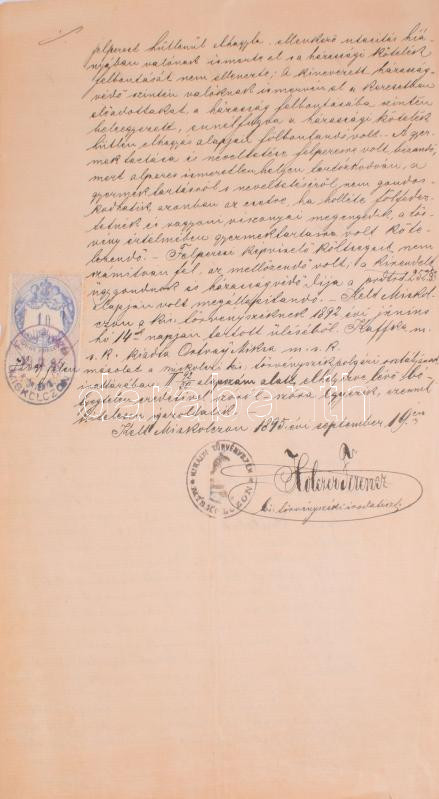 felperest hűtlenül elhagyta, ellenkező utasítás hiá-
nyában valónak ismerte el s a házassági kötelék
felbontását nem ellenezte; A kinevezett házasság-
védő szintén valóknak ismervén el a keresetben
előadottakat, a házasság felbontásába szintén
beleegyezett, ennélfogva a házassági kötelék
hűtlen elhagyás alapján felbontandó volt. A gyer-
mek tartása és neveltetése felperesre volt bizandó
mert alperes ismeretlen helyen tartózkodván, a
gyermek tartásról s neveltetéséről nem gondos-
kodhatik, azonban az esetre, ha holléte fölfedez-
tetnék és vagyoni viszonyai megengedik, a tör-
vény értelmében gyermektartásra volt köte-
lezendő. – Felperesi képviselő költségeit nem
számítván fel, az mellőzendő volt, a kirendelt
ügygondnok és házasságvédő díja a
alapján volt megállapítandó. – Kelt Miskol-
czon a kir. törvényszéknek 1895 évi június
hó 14-én napján tartott üléséből. Raffka m.
s. k. kiadta Osváth Miksa m. s. k.
másolat a miskolczi kir. törvényszék polgári osztályának
irattárában alapszám alatt elhelyezve lévő
eredetivel szóról szóra egyezik, ezennel
hitelesen igazoltatik.
Kelt Miskolczon 1895 évi september 19-én
1 ft
KIRÁLYI TÖRVÉNYSZÉK
MISKOLCZON
Holczer Ferencz
kir. törvényszéki irodatiszt
darabanth.com